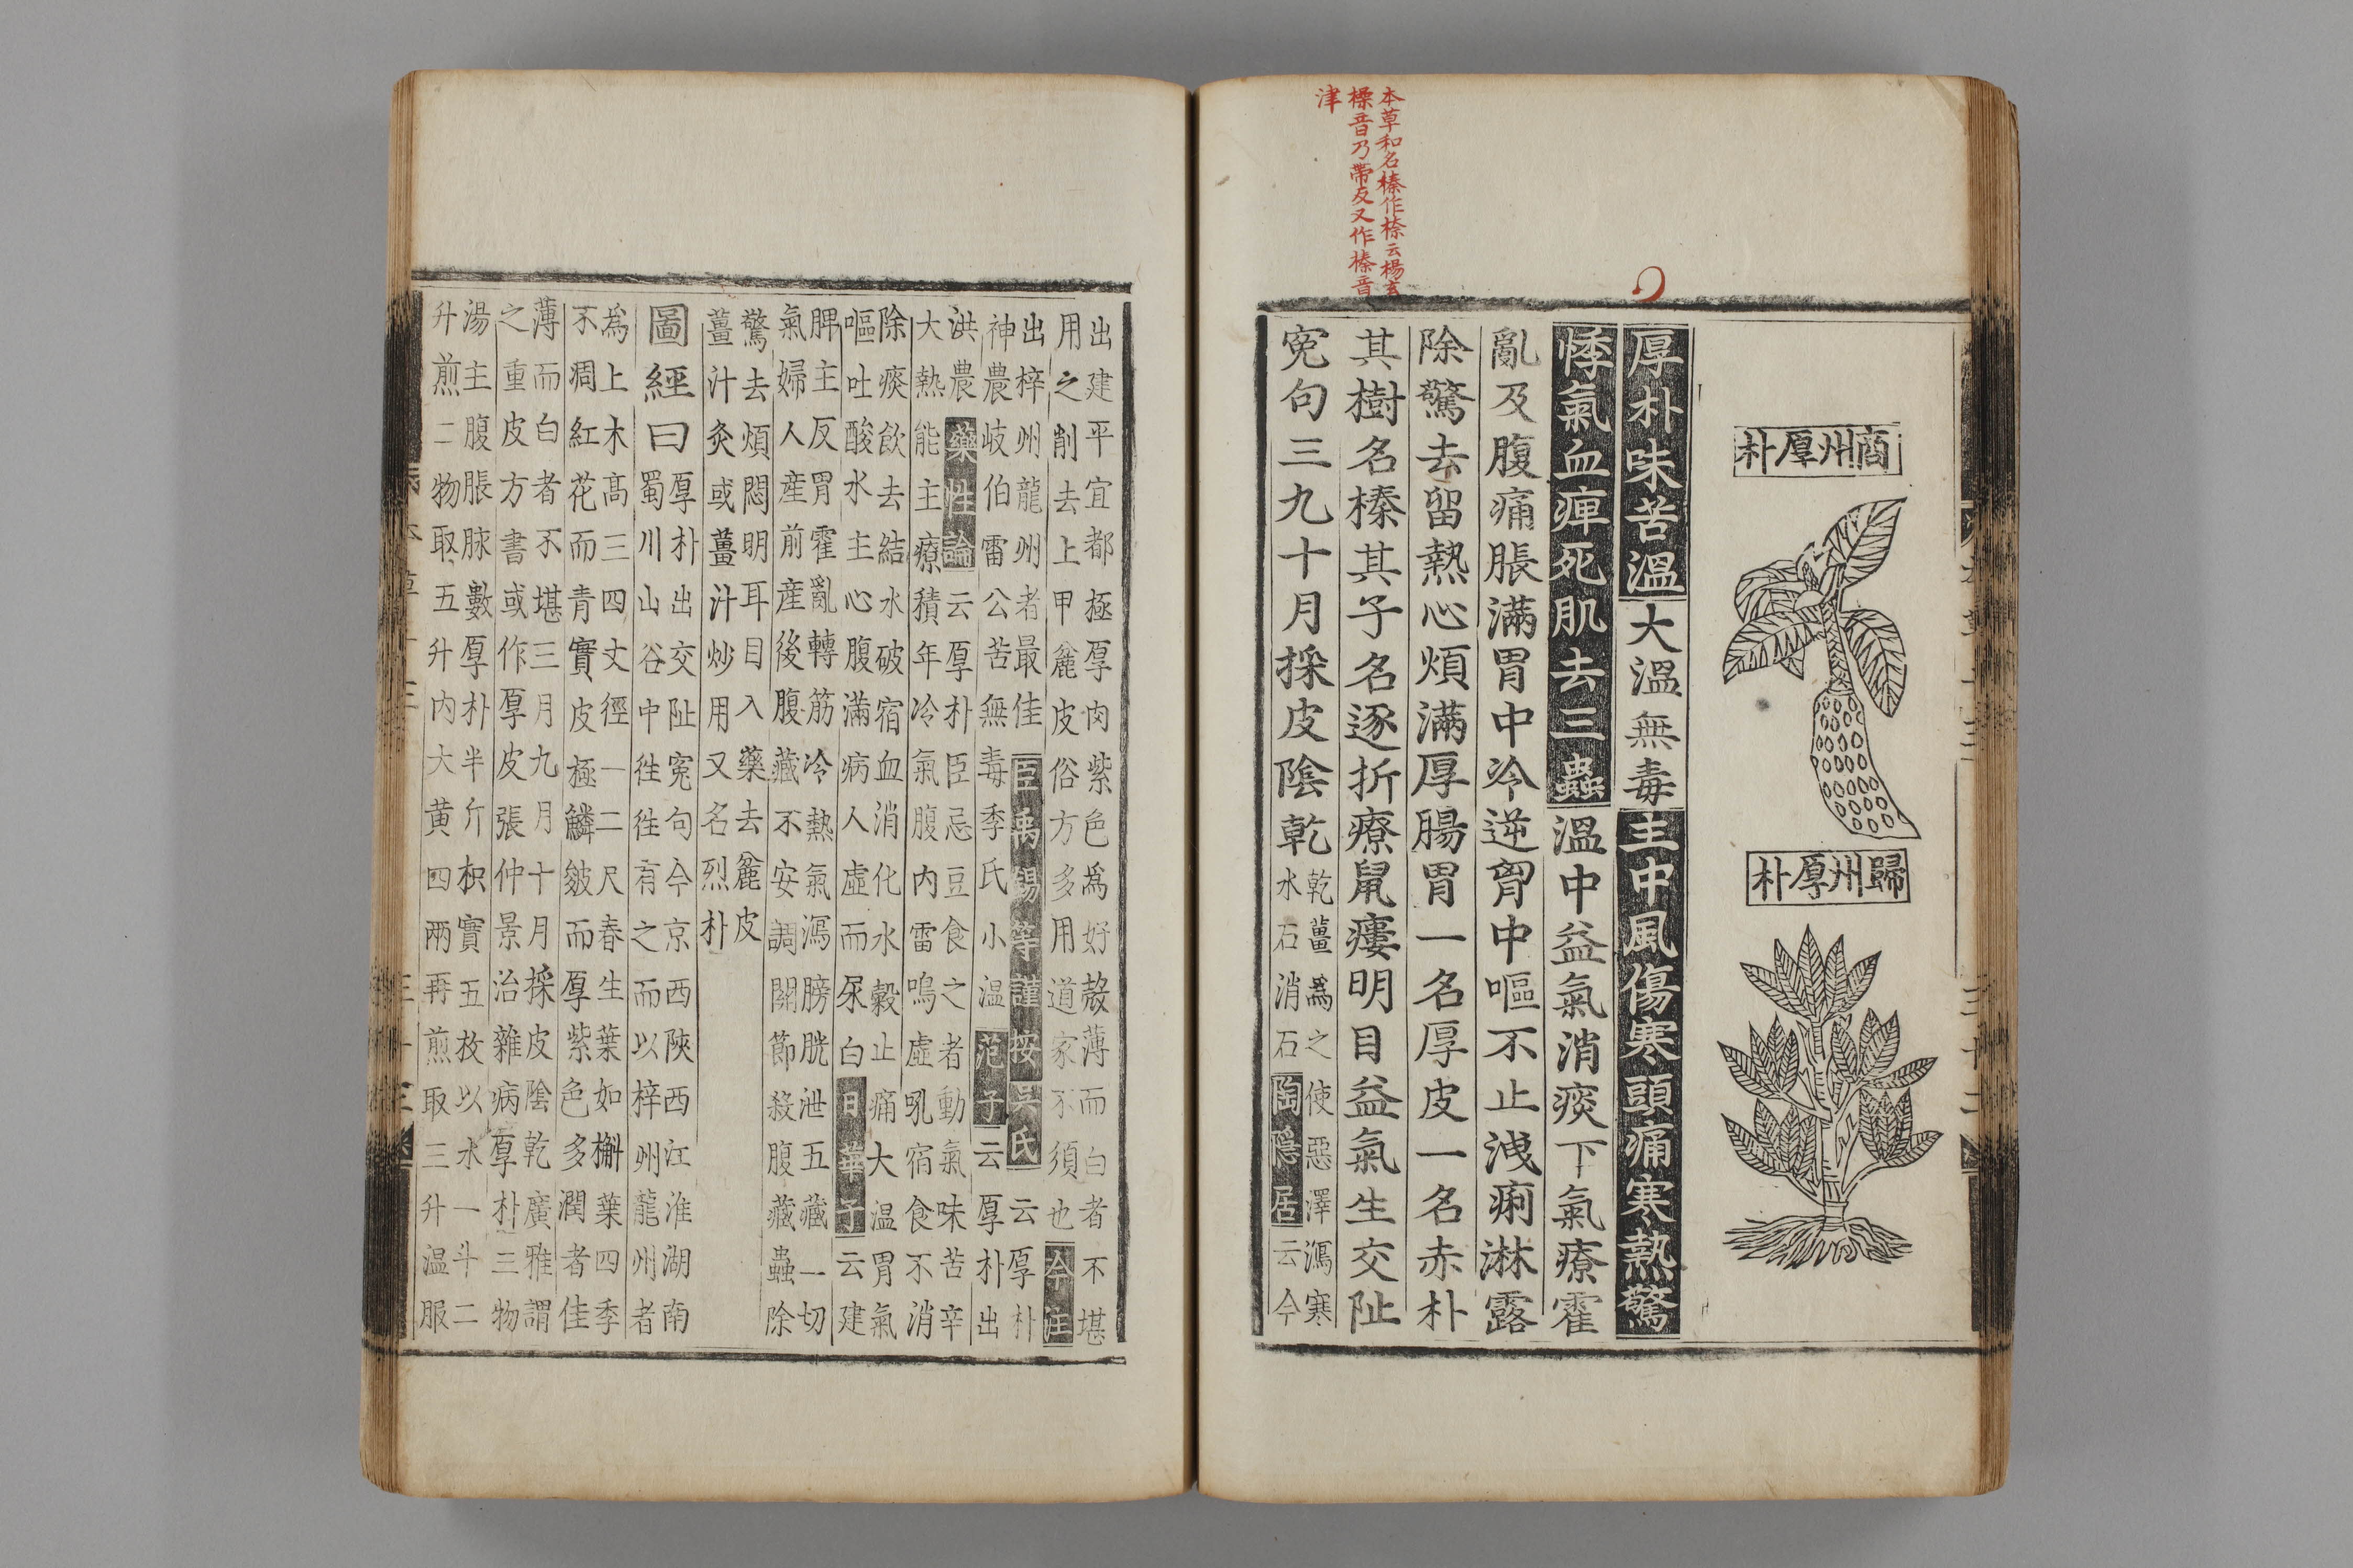 本草和名榛作㮈云楊玄
㯃音乃帶反又作榛音
津
商州厚朴
歸州厚朴
厚朴味苦溫大溫無毒主中風傷寒頭痛寒熱驚
悸氣血痺死肌去三蟲溫中益氣消痰下氣療霍
亂及腹痛脹滿胃中冷逆胷中嘔不止洩痢淋露
除驚去留熱心煩滿厚腸胃一名厚皮一名赤朴
其樹名榛其子名逐折療鼠瘻明目益氣生交阯
寃句三九十月採皮陰乾
乾薑爲之使惡澤瀉寒
水石消石陶隱居云今
出建平宜都極厚肉紫色爲好殼薄而白者不堪
用之削去上甲麄皮俗方多用道家不須也今注
出梓州龍州者最佳臣禹錫等謹按吳氏云厚朴
神農岐伯雷公苦無毒季氏小溫范子云厚朴出
洪農藥性論云厚朴臣忌豆食之者動氣味苦辛
大熱能主療積年冷氣腹內雷鳴虛吼宿食不消
除痰飲去結水破宿血消化水穀止痛大溫胃氣
嘔吐酸水主心腹滿病人虛而尿白日華子云建
脾主反胃霍亂轉筋冷熱氣瀉膀胱泄五藏一切
氣婦人産前産後腹藏不安調關節殺腹藏蟲除
驚去煩悶明耳目入藥去麄皮
薑汁灸或薑汁炒用又名烈朴
圖經曰
厚朴出交阯寃句今京西陝西江淮湖南
蜀川山谷中往往有之而以梓州龍州者
爲上木高三四丈徑一二尺春生葉如槲葉四季
不凋紅花而青實皮極鱗皴而厚紫色多潤者佳
薄而白者不堪三月九月十月採皮陰乾廣雅謂
之重皮方書或作厚皮張仲景治雜病厚朴三物
湯主腹脹脉數厚朴半斤枳實五枚以水一斗二
升煎二物取五升內大黄四兩再煎取三升溫服